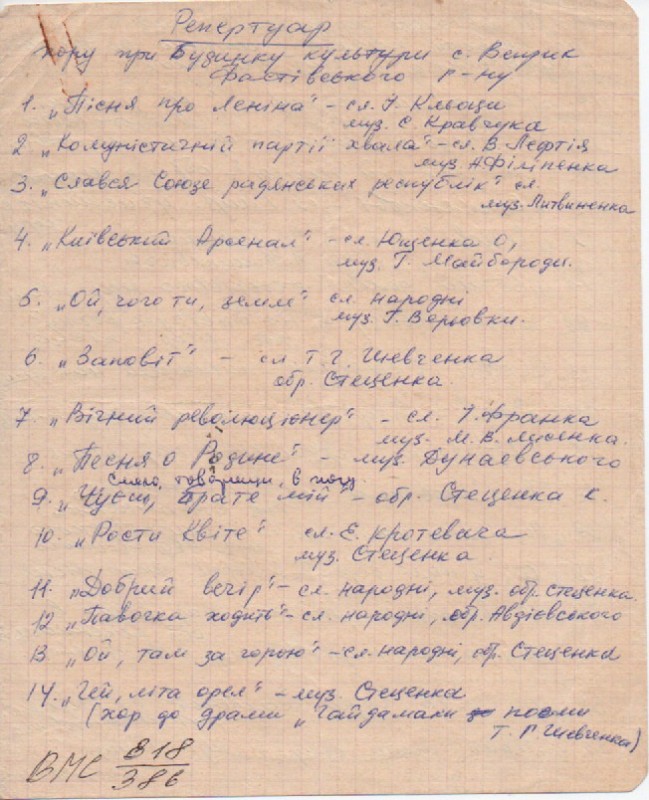 Репертуар
хору при Будинку культури с. Веприк
Фастівського р-ну
1. „Пісня про Леніна" - сл. І. Кльоци
муз. Є Кравчука
2 „Комуністичній партії хвала" - сл. В. Лефтія
муз А. Філіпенка
3. „Слався Союзе радянських республік" сл.
муз. Литвиненка
4. „Київський Арсенал" - сл. Ющенка О,
муз. Г. Майбороди.
5. „Ой, чого ти, земле" сл. народні
муз. Г. Верьовки.
6. „Заповіт" - сл. Т. Г. Шевченка
обр. Стеценка.
7. „Вічний революціонер" - сл. І. Франка
муз. М. В. Лисенка.
8. „Песня о Родине" - муз. Дунаевського
Смело, товарищи, в ногу
9. „Чуєш, брате мій" - обр. Стеценка К.
10. „Рости Квіте" сл. Є. Кротевича
муз. Стеценка.
11. „Добрий вечір" - сл. народні, муз. обр. Стеценка.
12 „Павочка ходить" - сл. народні, обр. Авдієвського
13. „Ой, там за горою" - сл. народні, обр. Стеценка
14. „Гей, літа орел" - муз. Стеценка
(хор до драми „Гайдамаки поеми
Т. Г Шевченка)
ВМС 818
386